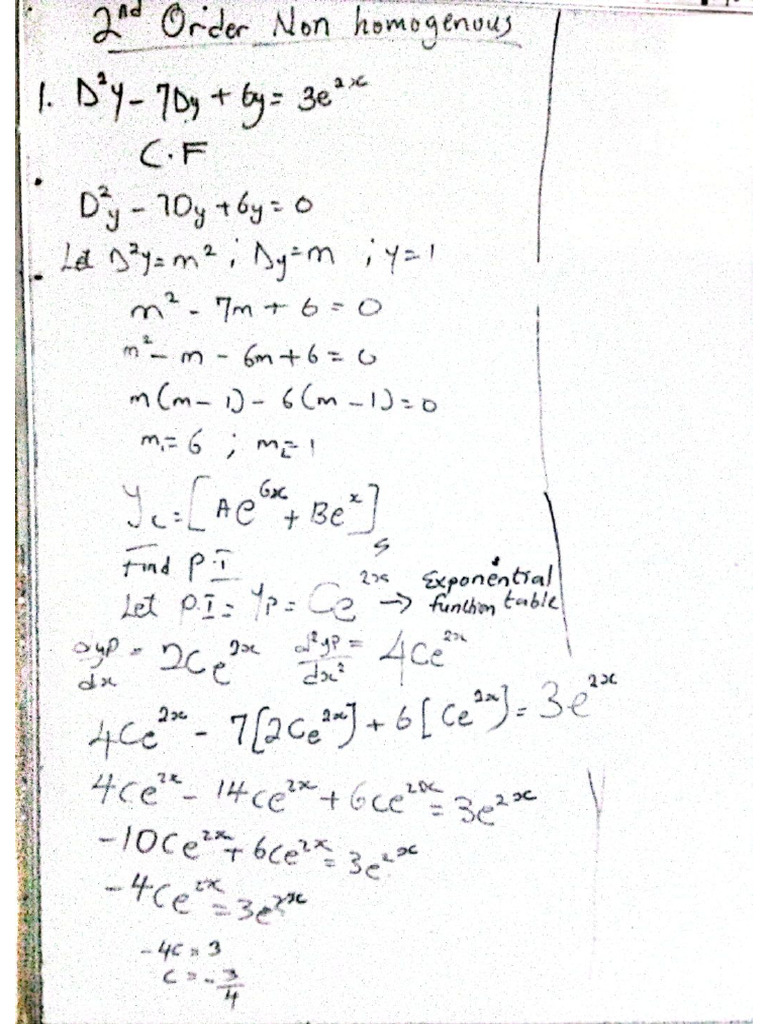 2nd Order Non homogenous
1. D²y - 7Dy + 6y = 3e^2x
C.F
D²y - 7Dy + 6y = 0
Let D²y = m² ; Dy = m ; y = 1
m² - 7m + 6 = 0
m² - m - 6m + 6 = 0
m(m - 1) - 6(m - 1) = 0
m₁ = 6 ; m₂ = 1
y_c = [Ae^6x + Be^x]
Find P.I
Let P.I = yp = Ce^2x → Exponential function table
dyp/dx = 2Ce^2x d²yp/dx² = 4Ce^2x
4Ce^2x - 7[2Ce^2x] + 6[Ce^2x] = 3e^2x
4Ce^2x - 14Ce^2x + 6Ce^2x = 3e^2x
-10Ce^2x + 6Ce^2x = 3e^2x
-4Ce^2x = 3e^2x
-4C = 3
C = -3/4